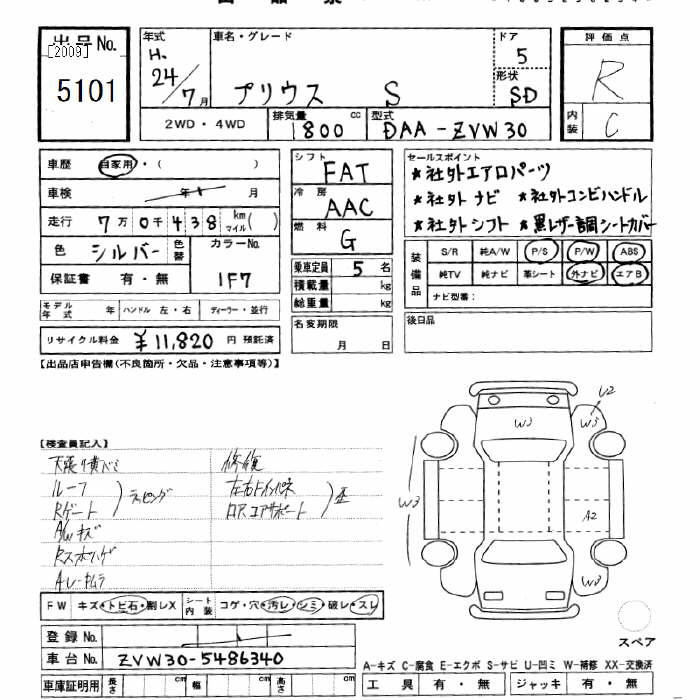 出品No.
[2009]
5101
年式
H.
24/7月
車名・グレード
プリウス S
ドア
5
形状
SD
評価点
R
内装
C
2WD・4WD
排気量
1800 cc
型式
DAA-ZVW30
車歴 自家用・( )
車検 年 月
走行 7万0千438 km マイル( )
色 シルバー 色替 カラーNo.
保証書 有・無 1F7
モデル年式 年 ハンドル 左・右 ディーラー・並行
リサイクル料金 ¥11,820 円 預託済
シフト
FAT
冷房
AAC
燃料
G
乗車定員 5 名
積載量 kg
総重量 kg
名変期限
月 日
セールスポイント
★社外エアロパーツ
★社外ナビ ★社外コンビハンドル
★社外シフト ★黒レザー調シートカバー
装備品
S/R 純A/W P/S P/W ABS
純TV 純ナビ 革シート 外ナビ エアB
ナビ型番:
後日品
【出品店申告欄(不良箇所・欠品・注意事項等)】
【検査員記入】
ルーフ
Rゲート
A/Wキズ
修復
歪
W3
W3
U2
W3
A2
W3
FW キズ・トビ石・割レX シート内装 コゲ・穴・汚レ・シミ・破レ・スレ
登録No.
車台No. ZVW30-5486340
車庫証明用 長さ cm 幅 cm 高さ cm
スペア
A-キズ C-腐食 E-エクボ S-サビ U-凹ミ W-補修 XX-交換済
工具 有・無 ジャッキ 有・無